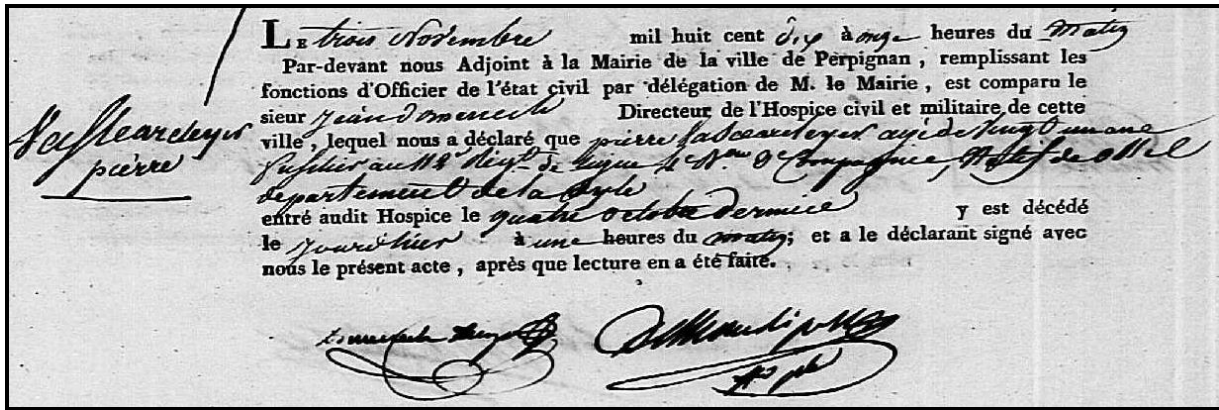 LE trois Novembre mil huit cent dix à onze heures du matin
Par-devant nous Adjoint à la Mairie de la ville de Perpignan, remplissant les
fonctions d'Officier de l'état civil par délégation de M. le Mairie, est comparu le
sieur jean Domenech Directeur de l'Hospice civil et militaire de cette
ville, lequel nous a déclaré que pierre agé de vingt un ans
pierre
fusilier au 112e Régt. de ligne 4e Bon 3e Compagnie, Natif de
departement de la Dyle
entré audit Hospice le quatre octobre dernier y est décédé
le jour d'hier à une heures du matin; et a le déclarant signé avec
nous le présent acte, après que lecture en a été faite.